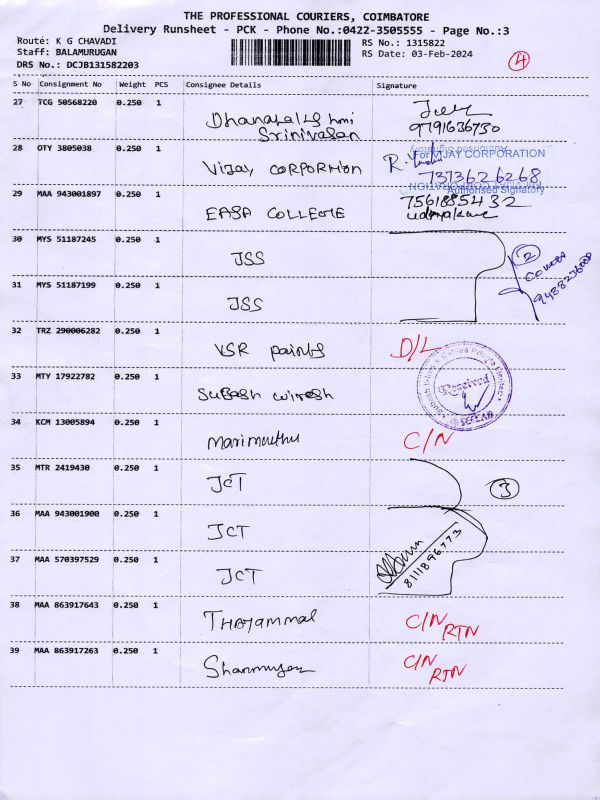 THE PROFESSIONAL COURIERS, COIMBATORE
Delivery Runsheet - PCK - Phone No.:0422-3505555 - Page No.:3
Route: K G CHAVADI
Staff: BALAMURUGAN
DRS No.: DCJB131582203
RS No.: 1315822
RS Date: 03-Feb-2024
4
S No Consignment No Weight PCS Consignee Details Signature
27 TCG 50568220 0.250 1 Dhanalakshmi
Srinivasan
9791636730
28 OTY 3805038 0.250 1 VIJAY CORPORTION
For VIJAY CORPORATION
7373626268
Authorised Signatory
29 MAA 943001897 0.250 1 EASA COLLEGE
7561885432
30 MYS 51187245 0.250 1 JSS
2
31 MYS 51187199 0.250 1 JSS
32 TRZ 290006282 0.250 1 VSR paints D/L
33 MTY 17922782 0.250 1 Subash wiresh
Received
34 KCM 13005894 0.250 1 Marimuthu C/N
35 MTR 2419430 0.250 1 JCT 3
36 MAA 943001900 0.250 1 JCT
37 MAA 570397529 0.250 1 JCT
8111896773
38 MAA 863917643 0.250 1 Thayammal C/N
RTN
39 MAA 863917263 0.250 1 C/N
RTN